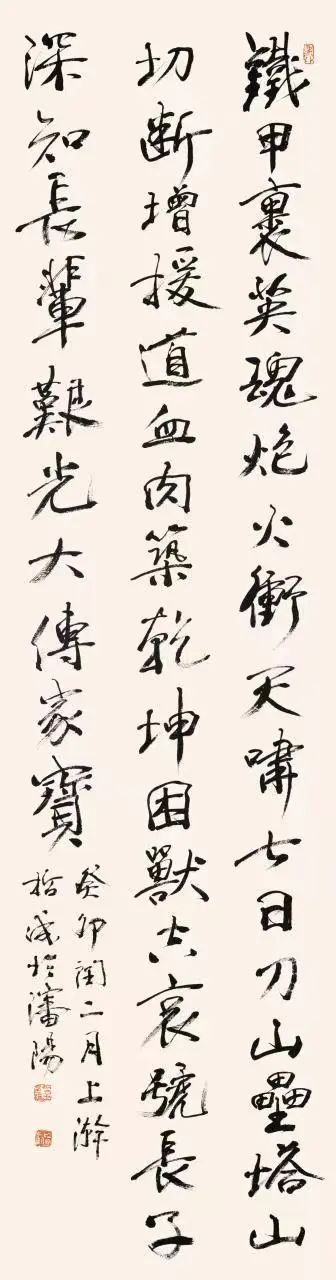 鐵甲裹英魂炮火衝天嘯七日刀山壘塔山
切斷增援道血肉築乾坤困獸空哀號長子
深知長輩艱光大傳家寶
癸卯閏二月上澣
於瀋陽